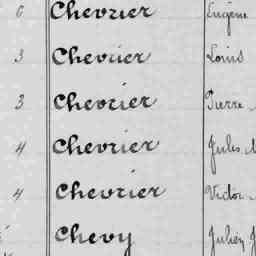 6 Chevrier Eugène
3 Chevrier Louis
3 Chevrier Pierre
4 Chevrier Jules
4 Chevrier Victor
Chevy Julien J